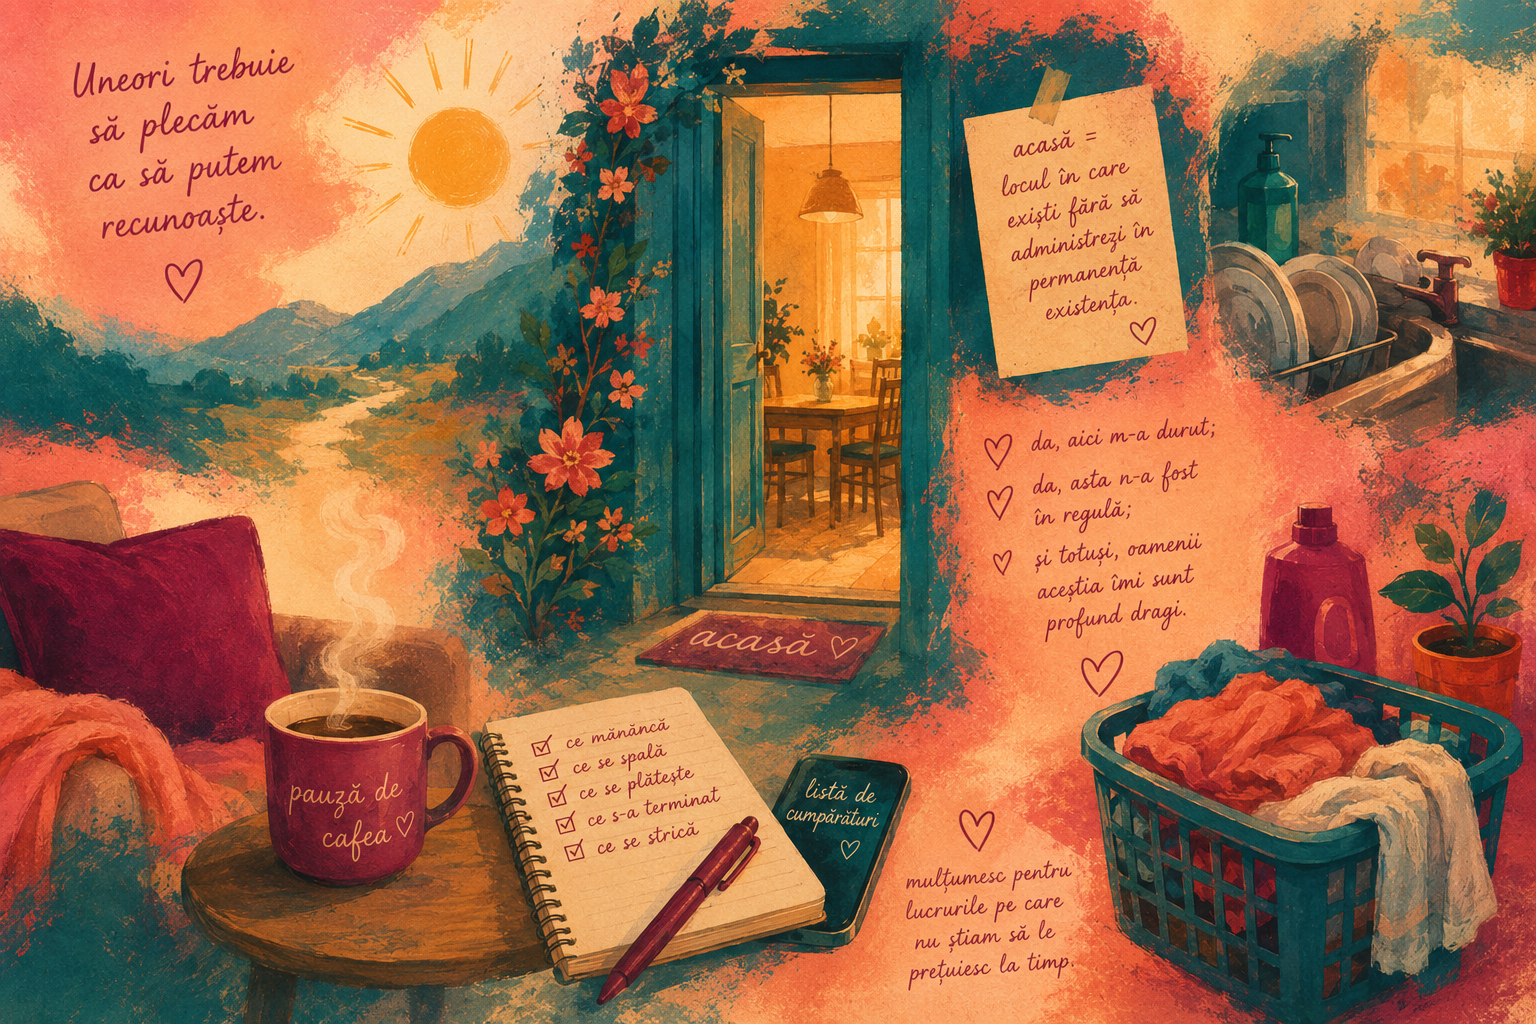 Uneori trebuie
să plecăm
ca să putem
recunoaște.
acasă =
locul în care
exiști fără să
administrezi în
permanență
existența.
da, aici m-a durut;
da, asta n-a fost
în regulă;
și totuși, oamenii
aceștia îmi sunt
profund dragi.
acasă
pauză de
cafea
ce mănâncă
ce se spală
ce se plătește
ce s-a terminat
ce se strică
listă de
cumpărături
mulțumesc pentru
lucrurile pe care
nu știam să le
prețuiesc la timp.